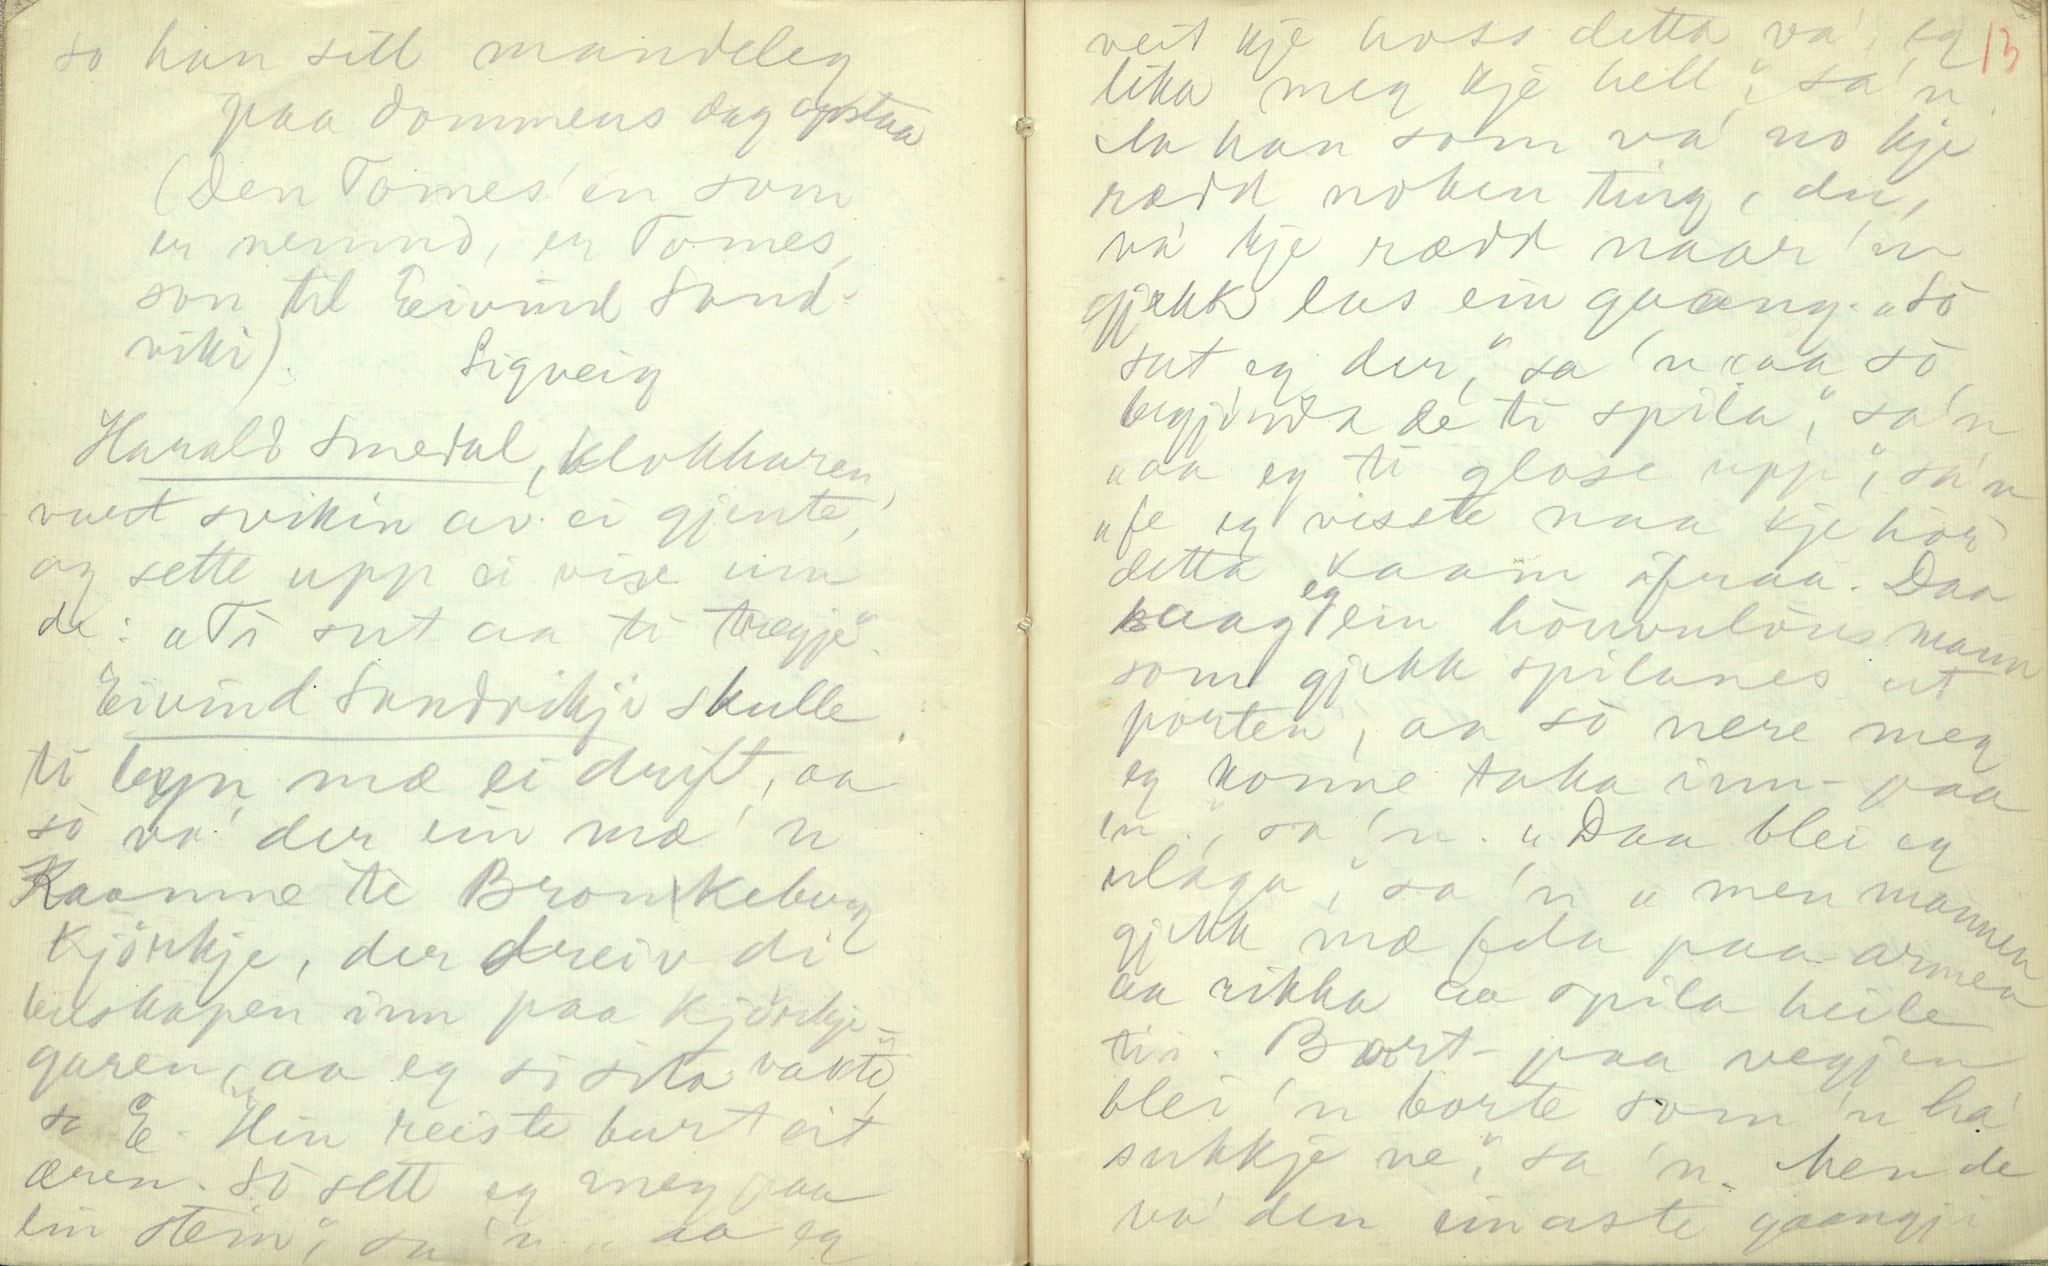 so han sill mandeleg
paa dommens dag opstaa
(Den Tomes'en som
er nemnd, er Tomes,
son til Eivind Sand-
viki).
Sigveig
Harald Smedal, klokkaren,
vart svikin av ei gjente,
og sette upp ei vise um
de: "Ti sut aa ti trægje".
Eivind Sandvikji skulle
ti byn mæ ei drift, aa
so va' der ein mæ 'n
Kaamme te Bronkeberg
kjörkje, der dreiv di
buskapen inn paa kjörkje-
garen, "aa eg si sita vakti,"
sa E. "Hin reiste burt eit
æren. So sett eg meg paa
ein stein," sa 'n "aa eg
veit kje hoss detta va', eg
lika meg kje hell", sa'n.
han som va' no kje
rædd noken ting, du,
va' kje rædd naar 'n
gjekk laus ein gaang. "So
sat eg der," sa 'n "aa so
begjynda de ti spila", sa'n
"aa eg ti glose upp", sa'n
"fe eg visste naa kje hör
detta kaam ifraa. Daa
saag eg ein höuvulöus mann
som gjekk spilanes ut
porten, aa so nere meg
eg konne taka inn-paa
'n", sa 'n. "Daa blei eg
ulaga", sa 'n "men mannen
gjekk mæ fela paa armen
aa rikka aa spila heile
tii. Bort-paa vegjen
blei 'n borte som 'n ha'
sukkje ne", sa 'n. Men de
va' den einaste gaangji
13